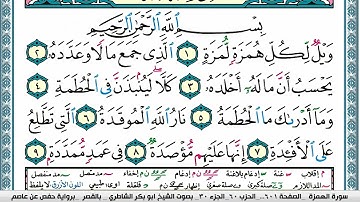 بِسْمِ اللَّهِ الرَّحْمَٰنِ الرَّحِيمِ
وَيْلٌ لِّكُلِّ هُمَزَةٍ لُّمَزَةٍ ١ الَّذِي جَمَعَ مَالًا وَعَدَّدَهُ ٢
يَحْسَبُ أَنَّ مَالَهُ أَخْلَدَهُ ٣ كَلَّا لَيُنبَذَنَّ فِي الْحُطَمَةِ ٤
وَمَا أَدْرَاكَ مَا الْحُطَمَةُ ٥ نَارُ اللَّهِ الْمُوقَدَةُ ٦ الَّتِي تَطَّلِعُ
عَلَى الْأَفْئِدَةِ ٧ إِنَّهَا عَلَيْهِم مُّؤْصَدَةٌ ٨ فِي عَمَدٍ مُّمَدَّدَةٍ
سورة الهمزة . الصفحة ٦٠١ .. الحزب ٦٠ الجزء ٣٠ بصوت الشيخ ابو بكر الشاطري بالقصر برواية حفص عن عاصم